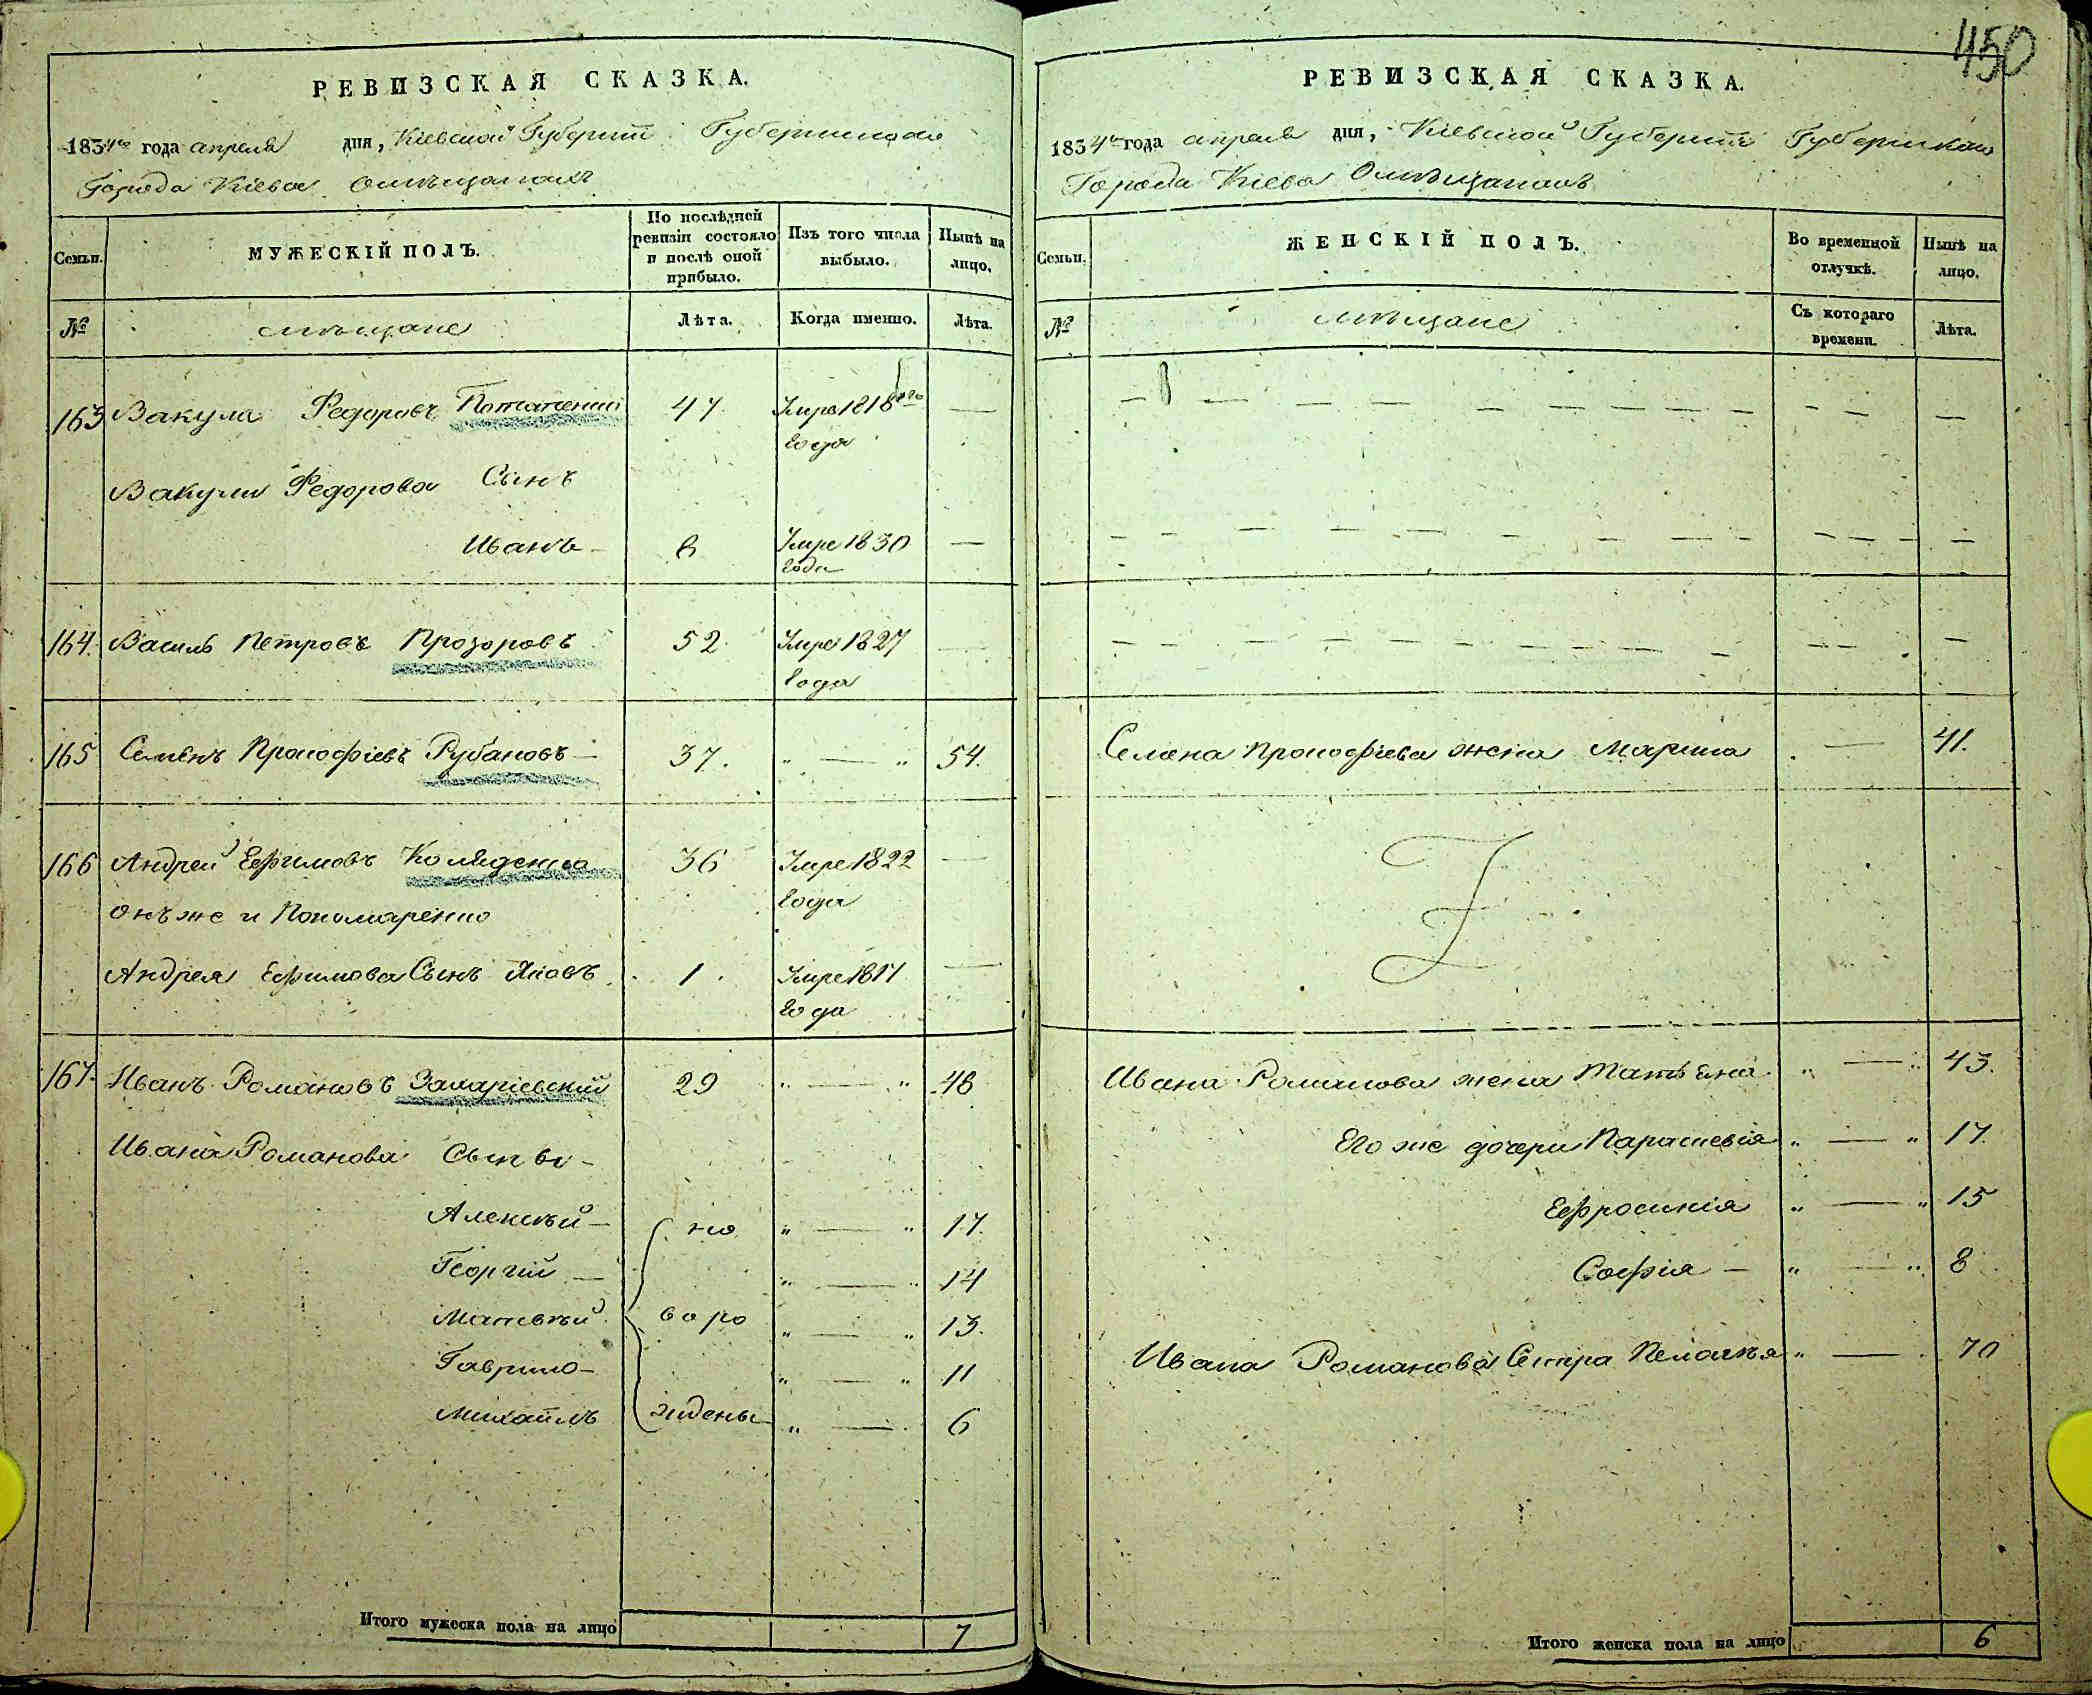 РЕВИЗСКАЯ СКАЗКА.
1834го года апреля дня, Кіевской Губерніи Губернскаго
Города Кіева О мѣщанахъ
Семьи. МУЖЕСКІЙ ПОЛЪ. По послѣдней ревизіи состояло и послѣ оной прибыло. Изъ того числа выбыло. Нынѣ на лицо.
№ мѣщане Лѣта. Когда именно. Лѣта.
163 Вакула Федоровъ 47 Умре 1818го —
года
Вакулы Федорова Сынъ
Иванъ — 6 Умре 1830 —
года
164. Василь Петровъ Прозоровъ 52 Умре 1827 —
года
165 Семенъ Прокофіевъ Рубановъ — 37. „ — „ 54.
166 Андрей Ефимовъ Коляденко 36 Умре 1822 —
онъ же и Пономаренко года
Андрея Ефимова Сынъ Яковъ 1. Умре 1817 —
года
167. Иванъ Романовъ Захаріевскій 29 „ — „ 46
Ивана Романова Сыны —
Алексѣй — но „ — „ 17.
Георгій — „ — „ 14
Матвѣй воро „ — „ 13.
Гаврило — „ — „ 11
Михайлъ жденъ „ — 6
Итого мужеска пола на лицо 7
450
РЕВИЗСКАЯ СКАЗКА.
1834го года апреля дня, Кіевской Губерніи Губернскаго
Города Кіева О мѣщанахъ
Семьи. ЖЕНСКІЙ ПОЛЪ. Во временной отлучкѣ. Нынѣ на лицо.
№ мѣщане Съ котораго времени. Лѣта.
Семена Прокофіева жена Марина — 41.
Ивана Романова жена Татьяна „ — „ 43.
Его же дочери Параскевія „ — „ 17.
Ефросинія „ — „ 15
Софія — „ — „ 8
Ивана Романова Сестра Пелагѣя „ — 70
Итого женска пола на лицо 6